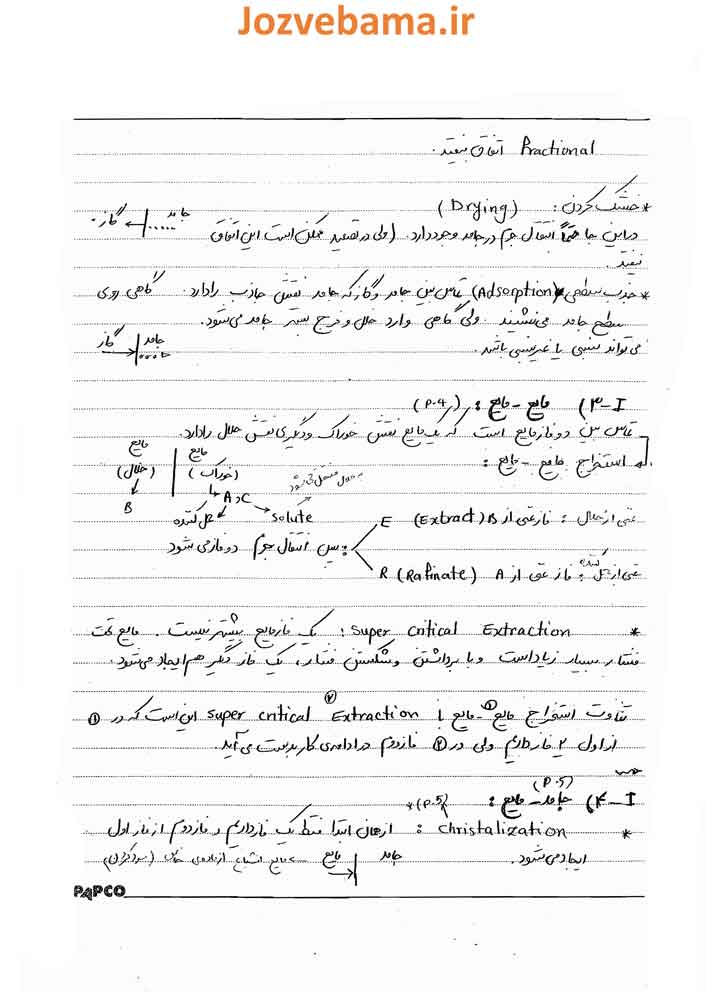 Jozvebama.ir
Practional اتفاق بیفتد.
* خشک کردن: (Drying)
جامد گاز
در این جا حتماً انتقال جرم در جامد وجود دارد. (ولی در تصعید ممکن است این اتفاق
نیفتد.
* جذب سطحی (Adsorption) تماس بین جامد و گاز که جامد نقش جاذب را دارد. گاهی روی
سطح جامد می‌نشیند ولی گاهی وارد خلل و فرج بستر جامد می‌شود.
جامد گاز
می‌تواند نسبی یا غیرنسبی باشد.
I-۳) مایع - مایع: (P.4)
تماس بین دو فاز مایع است که یک مایع نقش خوراک و دیگری نقش حلال را دارد.
استخراج مایع - مایع:
مایع (خوراک) مایع (حلال)
A و C B
Solute حل کننده
غنی از حلال: فاز غنی از B (Extract) E
پس انتقال جرم دو فاز می شود
غنی از حل کننده: فاز غنی از A (Rafinate) R
* Super Critical Extraction: یک فاز مایع بیشتر نیست. مایع تحت
فشار بسیار زیاد است و با برداشتن و شکستن فشار، یک فاز دیگر هم ایجاد می‌شود.
تفاوت استخراج مایع - مایع ① با Super Critical Extraction ② این است که در ①
از اول ۲ فاز داریم ولی در ② فاز دوم در ادامه‌ی کار بدست می‌آید.
(P.5)
I-۴) جامد - مایع: (P.5)*
* Christalization: از همان ابتدا فقط یک فاز داریم و فاز دوم از فاز اول
ایجاد می‌شود.
جامد مایع
PAPCO